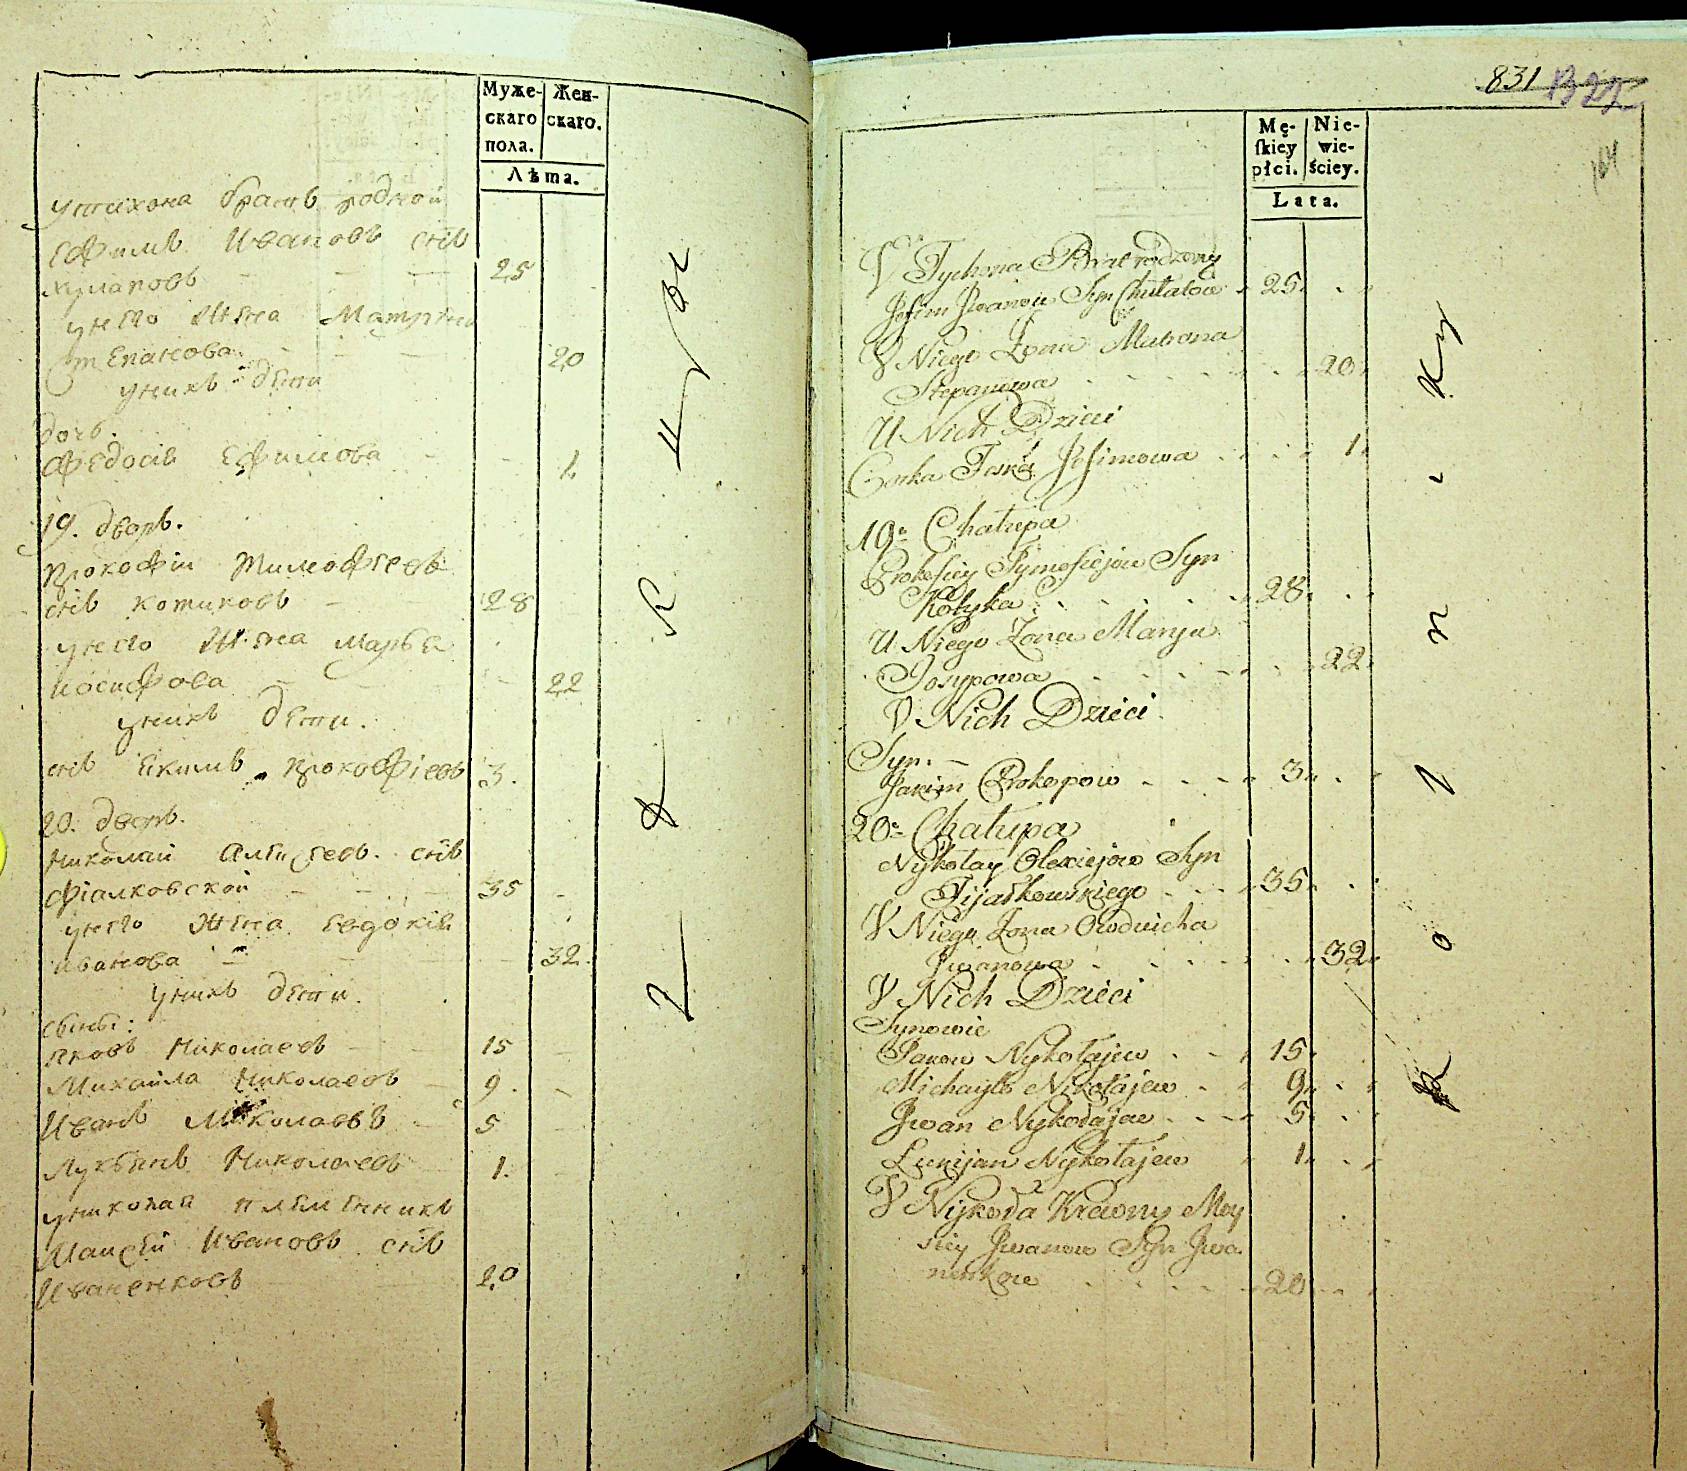 Муже-
скаго
пола.
Жен-
скаго.
Лѣта.
утихона братъ родной
Ефимъ Ивановъ снъ
хулаповъ 25
унего жена Матрена
степанова 20
унихъ дети
дочь.
Федосия Ефимова 1.
19. дворъ.
прокофiи тимофеевъ
снъ котиковъ 28
унего жена марья
иосифова 22
унихъ дети.
снъ екимъ прокофiевъ 3.
20. дворъ.
николаи алексеевъ. снъ
фiалковской 35
унего жена евдокия
иванова 32.
унихъ дети.
сыны:
яковъ николаевъ 15
михаила николаевъ 9.
иванъ николаевъ 5
лукьянъ николаевъ 1.
униколаи племенникъ
моисеи ивановъ снъ
иваненковъ 20
831
Mę-
ſkiey
płci.
Nie-
wie-
ściey.
Lata.
V Tychona Brat rodzony
Jefim Jwanow Syn Chułałow 25
V Niego Żona Matrona
Stepanowa 20
U Nich Dzieci
Corka Jefimowa 1
19. Chałupa
Prokofiey Tymofiejow Syn
Kotyka 28
U Niego Żona Marya
Josypowa 22
V Nich Dzieci
Syn.
Jakim Prokopow 3
20. Chałupa
Nykołay Olexiejow Syn
Fijałkowskiego 35
V Niego Żona Owdwicha
Jwanowa 32
V Nich Dzieci
Synowie
Jakow Nykołajew 15
Michayło Nikołajew 9
Jwan Nykołajew 5
Łukijan Nykołajew 1
V Nykoła Krewny Moy
siey Jwanow Syn Jwa
nenkow 20